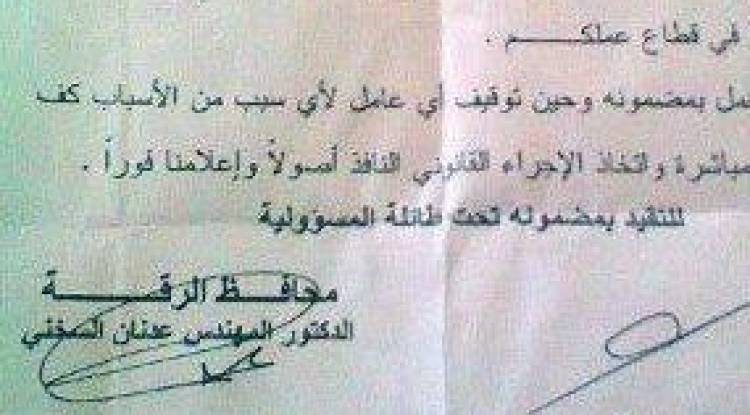 في قطاع عملكـــــم .
بمضمونه وحين توقيف أي عامل لأي سبب من الأسباب كف
مباشرة واتخاذ الإجراء القانوني النافذ أصولاً وإعلامنا فوراً .
للتقيد بمضمونه تحت طائلة المسؤولية
محافـــظ الرقـــــة
الدكتور المهندس عدنان السخني